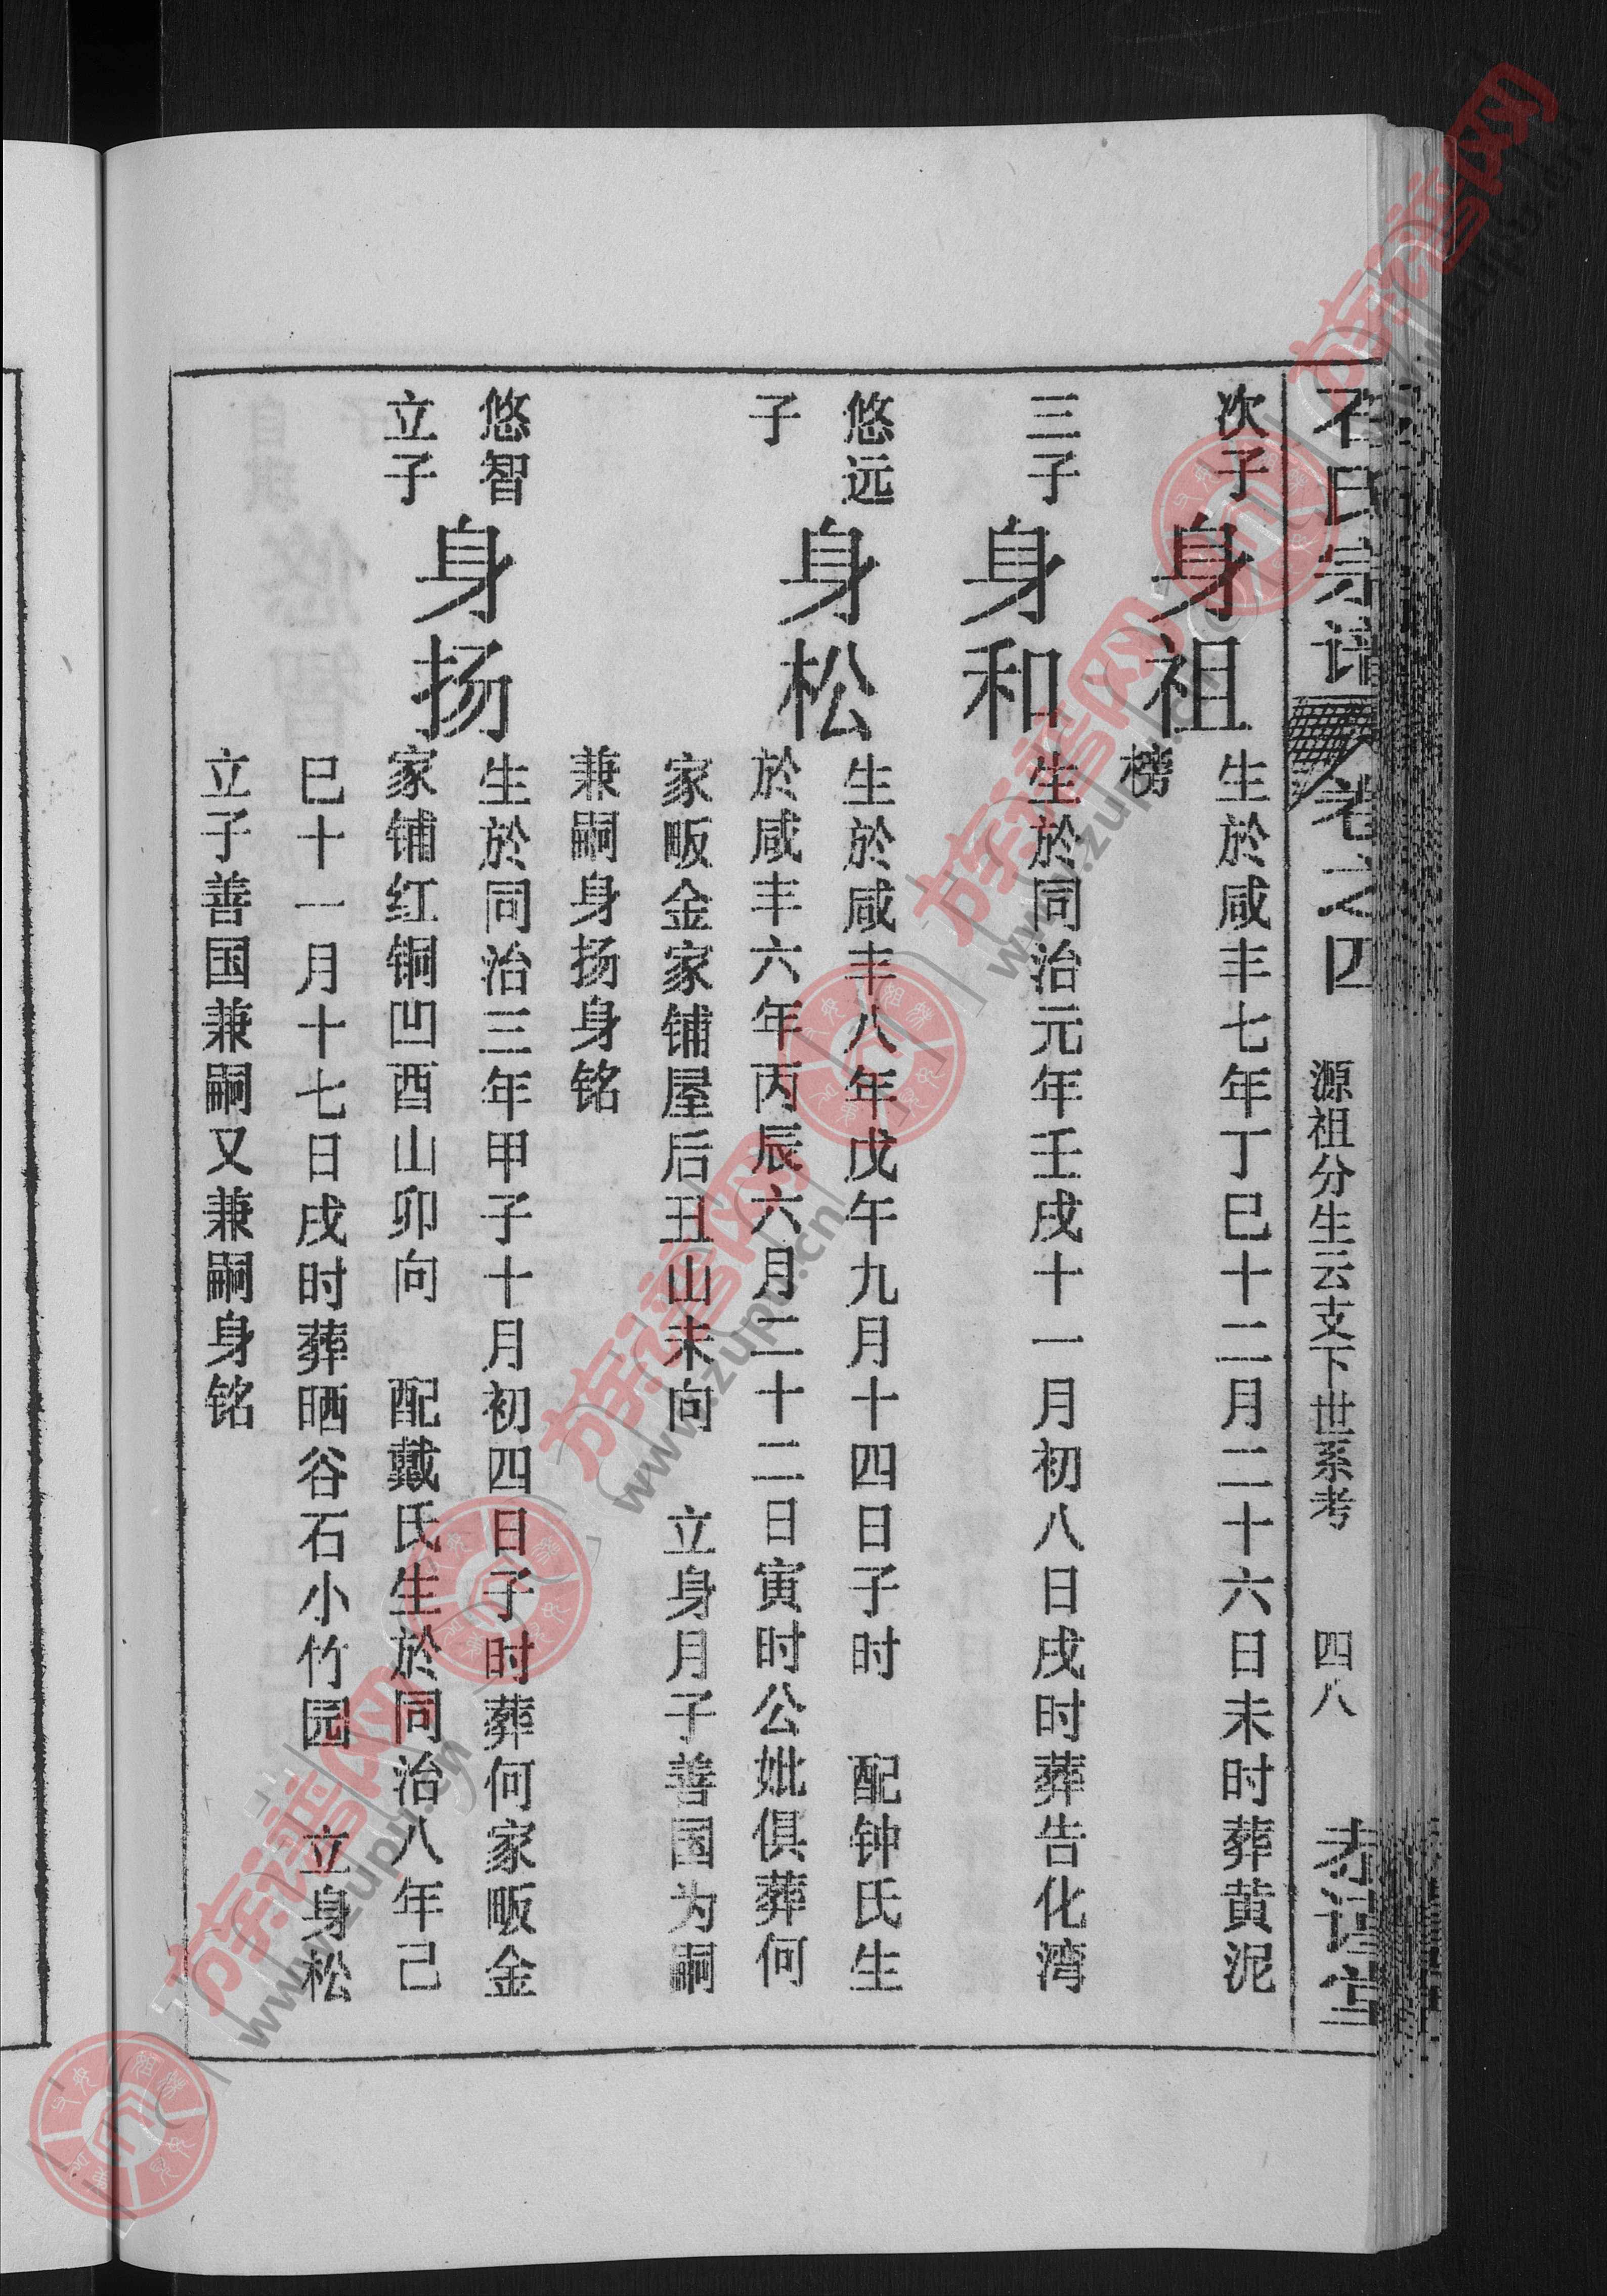 石氏宗谱 卷之四 源祖分生云支下世系考 四八 寿谊堂
次子 身祖 生於咸丰七年丁巳十二月二十六日未时葬黄泥
榜
三子 身和 生於同治元年壬戌十一月初八日戌时葬告化湾
悠远 身松 生於咸丰八年戊午九月十四日子时 配钟氏生
子 於咸丰六年丙辰六月二十二日寅时公妣俱葬何
家畈金家铺屋后丑山未向 立身月子善国为嗣
兼嗣身扬身铭
悠智 身扬 生於同治三年甲子十月初四日子时葬何家畈金
立子 家铺红铜凹酉山卯向 配戴氏生於同治八年己
巳十一月十七日戌时葬晒谷石小竹园 立身松
立子善国兼嗣又兼嗣身铭
族谱网
www.zupu.cn
族谱网
www.zupu.cn
族谱网
www.zupu.cn
族谱网
www.zupu.cn